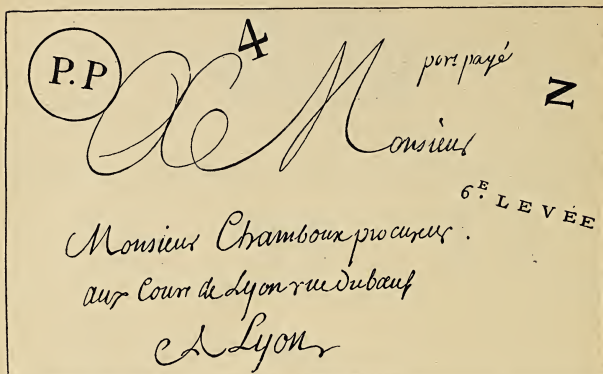 P.P
4
port payé
N
A Monsieur
6E. LEVÉE
Monsieur Chamboux procureur.
aux Cours de Lyon rue du bœuf
A Lyon